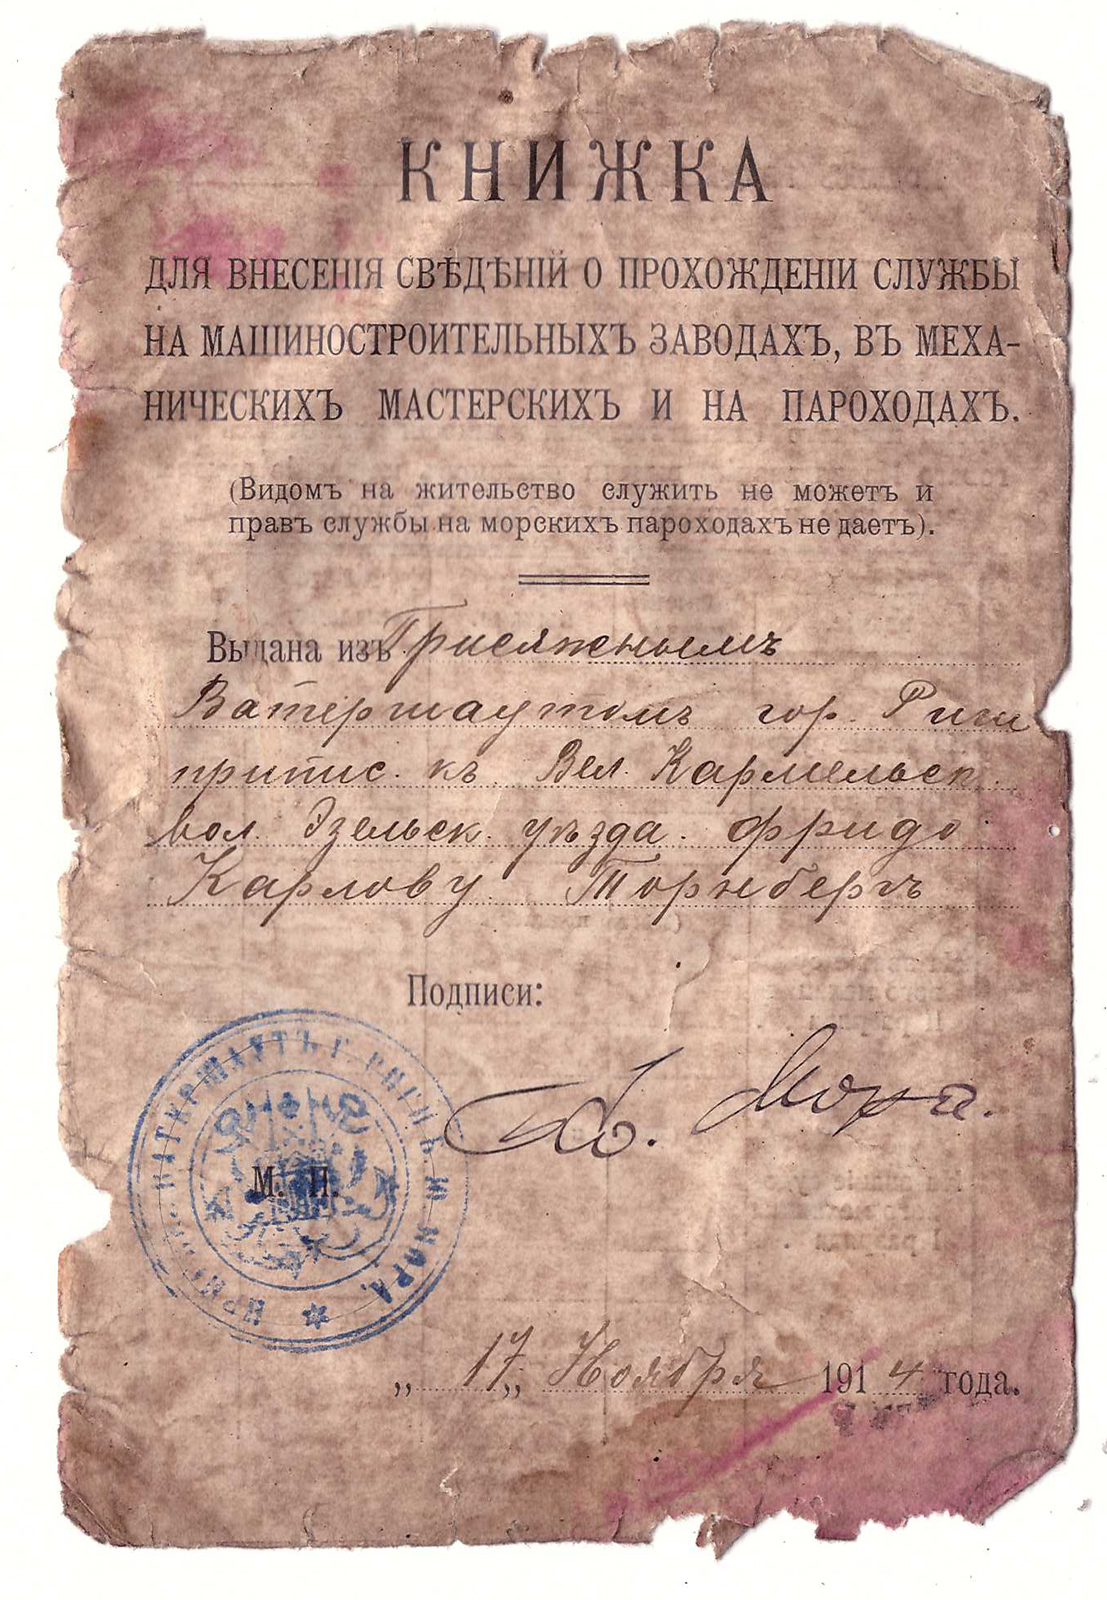 КНИЖКА
ДЛЯ ВНЕСЕНІЯ СВѢДѢНІЙ О ПРОХОЖДЕНІИ СЛУЖБЫ
НА МАШИНОСТРОИТЕЛЬНЫХЪ ЗАВОДАХЪ, ВЪ МЕХА-
НИЧЕСКИХЪ МАСТЕРСКИХЪ И НА ПАРОХОДАХЪ.
(Видомъ на жительство служить не можетъ и
правъ службы на морскихъ пароходахъ не даетъ).
Выдана изъ Присяжнымъ
Ватершаутомъ гор. Риги
припис. къ Вел. Кармельск.
вол. Эзельск. уѣзда. Фридо
Карлову Торнбергъ
Подписи:
М. П.
„ 17 „ Ноября 1914 года.